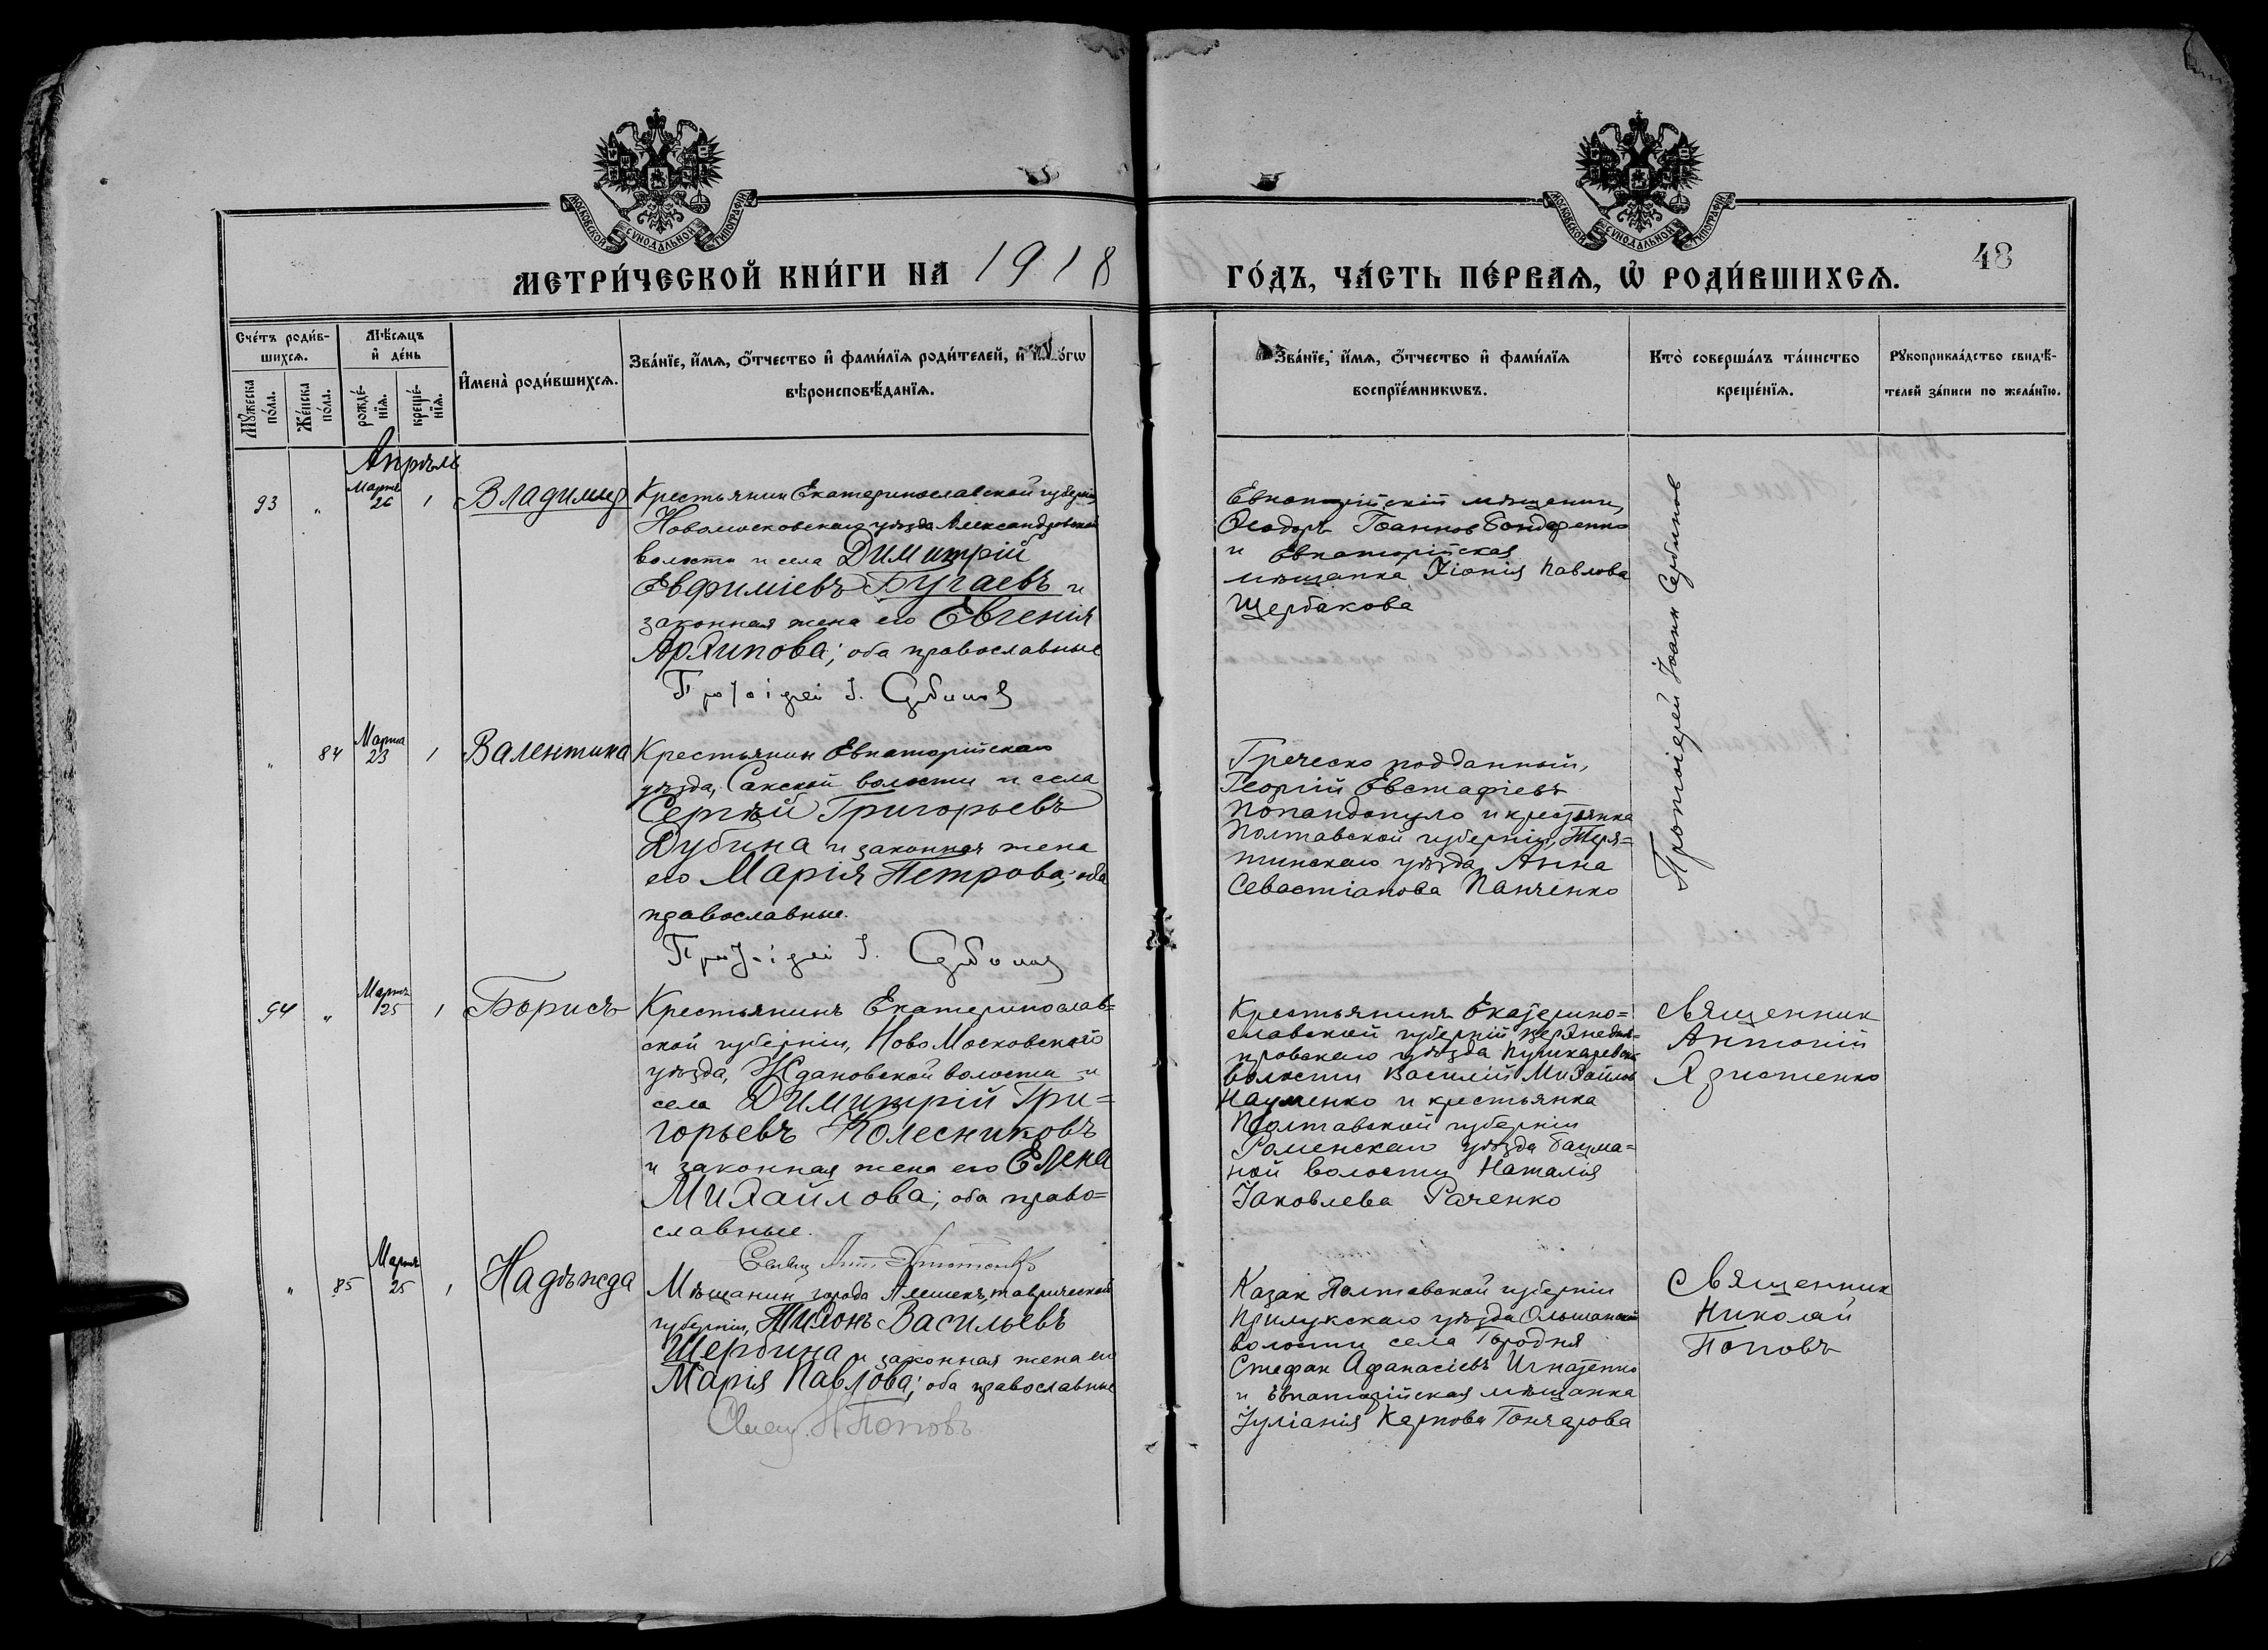 МОСКОВСКОЙ СѴНОДАЛЬНОЙ ТИПОГРАФІИ
МОСКОВСКОЙ СѴНОДАЛЬНОЙ ТИПОГРАФІИ
МЕТРИ́ЧЕСКОЙ КНИ́ГИ НА 1918
ГО́ДЪ, ЧА́СТЬ ПЕ́РВАѦ, Ѡ҆ РОДИ́ВШИХСѦ.
48
Сче́тъ роди́в-
шихсѧ.
Мꙋ́жеска
по́ла.
Же́нска
по́ла.
Мѣ́сѧцъ
и҆ де́нь
рожде́-
нїѧ.
креще́-
нїѧ.
И҆мена̀ роди́вшихсѧ.
Зва́нїе, и҆́мѧ, ѻ҆́тчество и҆ фами́лїѧ роди́телей, и҆
вѣроисповѣ́данїѧ.
Зва́нїе, и҆́мѧ, ѻ҆́тчество и҆ фами́лїѧ
воспрїе́мникѡвъ.
Кто̀ соверша́лъ та́инство
креще́нїѧ.
Рꙋкоприкла́дство свидѣ́-
телей за́писи по жела́нїю.
Апрѣль
93 " Марта 26 1 Владимир
Крестьянин Екатеринославской губерніи
Новомосковскаго уѣзда Александровской
волости и села Димитрій
Евфиміевъ Бугаевъ и
законная жена его Евгенія
Архипова; оба православные
Протоіерей І. Сербинов
Евпаторійскій мѣщанин
Ѳеодоръ Іоаннов Бондаренко
и Евпаторійская
мѣщанка Хіонія Павлова
Щербакова
Протоіерей Іоанн Сербинов
" 84 Марта 23 1 Валентина
Крестьянин Евпаторійскаго
уѣзда, Сакской волости и села
Сергѣй Григорьевъ
Дубина и законная жена
его Марія Петрова; оба
православные.
Протоіерей І. Сербинов
Греческо подданный,
Георгій Евстафіевъ
Попандопуло и крестьянка
Полтавской губерніи,
уѣзда Анна
Севастіанова Панченко
94 " Марта 25 1 Борисъ
Крестьянинъ Екатеринослав=
ской губерніи, Ново Московскаго
уѣзда, Ждановской волости и
села Димитрій Гри=
горьевъ Колесниковъ
и законная жена его Елена
Михайлова; оба право=
славные.
Крестьянинъ Екатерино=
славской губерніи, Верхнедне=
провскаго уѣзда Пушкаревской
волости Василій Михайлов
Науменко и крестьянка
Полтавской губерніи
Роменскаго уѣзда
волости Наталія
Іаковлева Раченко
Священник
Антоній
" 85 Марта 25 1 Надѣжда
Мѣщанин города Алешек, таврической
губерніи, Тихонъ Васильевъ
Щербина и законная жена его
Марія Павлова; оба православные
Свящ. Н. Поповъ
Казак Полтавской губерніи
Прилукскаго уѣзда Ольшанской
волости села Городня
Стефан Афанасіевъ Игнатенко
и Евпаторійская мѣщанка
Іуліанія Карпова Гончарова
Священник
Николай
Поповъ